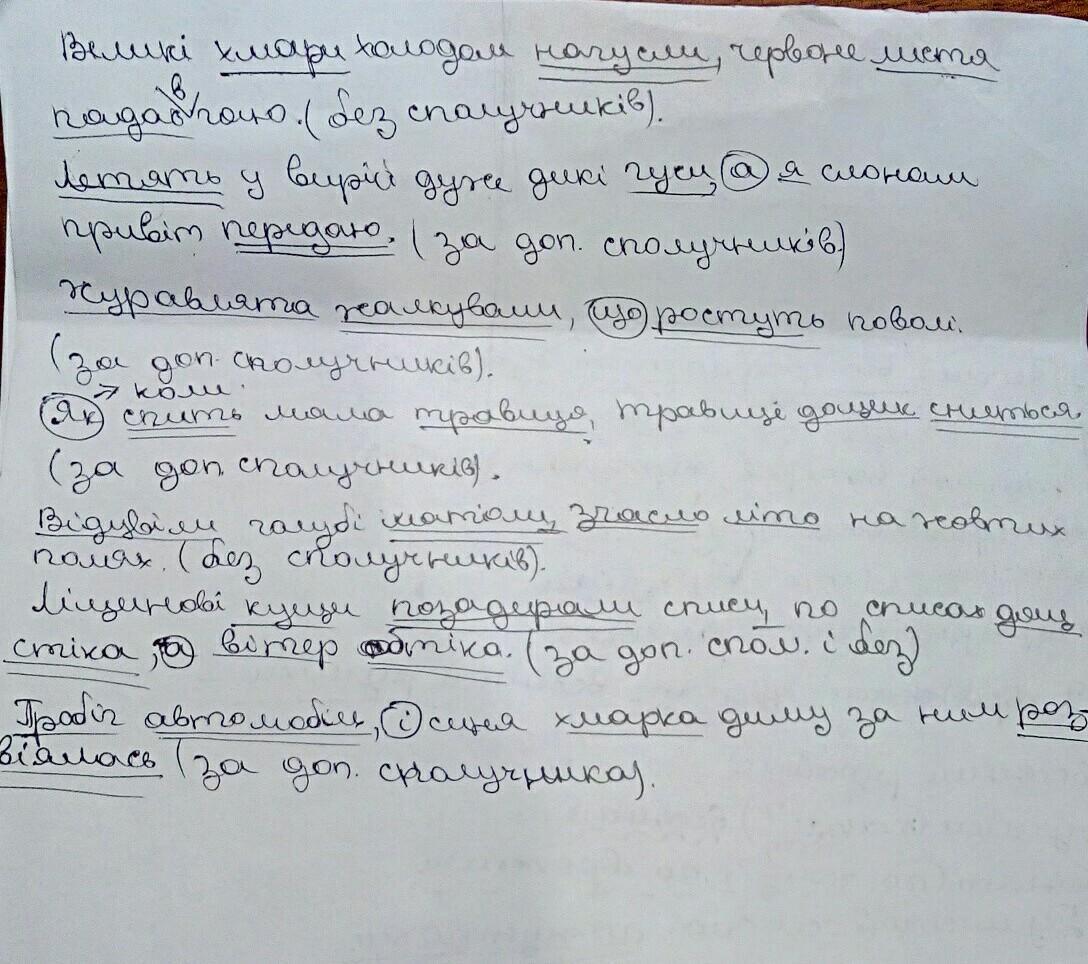 Великі хмари холодом нагусли, червоне листя
падає в гаю. (без сполучників).
Летять у вирій дуже дикі гуси, а я слонам
привіт передаю. (за доп. сполучників)
Журавлята жалкували, що ростуть поволі.
(за доп. сполучників).
→ коли
Як спить мала травиця, травиці дощик сниться.
(за доп. сполучників).
Відцвіли голубі, згасло літо на жовтих
полях. (без сполучників).
Ліщинові кущі позадирали списи, по списах дощ
стіка, а вітер обтіка. (за доп. спол. і без)
Пробіг автомобіль, і синя хмарка диму за ним роз-
віялась (за доп. сполучника).